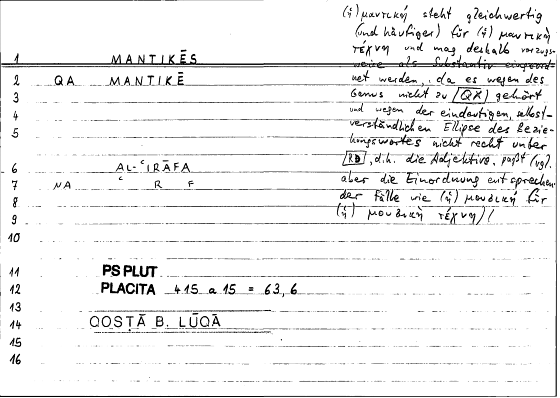 (ἡ) μαντική steht gleichwertig
(und häufiger) für (ἡ) μαντικὴ
τέχνη und mag deshalb vorzugs-
weise als Substantiv eingeord-
net werden, da es wegen des
Genus nicht zu QA gehört
und wegen der eindeutigen, selbst-
verständlichen Ellipse des Bezie-
hungswortes nicht recht unter
RD, d.h. die Adjektive, paßt (vgl.
aber die Einordnung entsprechen-
der Fälle wie (ἡ) μουσική für
(ἡ) μουσικὴ τέχνη)!
1 MANTIKĒS
2 QA MANTIKĒ
3
4
5
6 AL-ʿIRĀFA
7 NA ʿ R F
8
9
10
11 PS PLUT
12 PLACITA 415 a 15 = 63,6
13
14 QOSṬĀ B. LŪQĀ
15
16